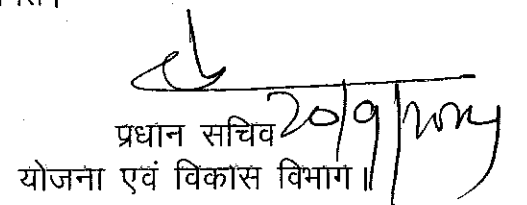 प्रधान सचिव 20/9/2024
योजना एवं विकास विभाग॥